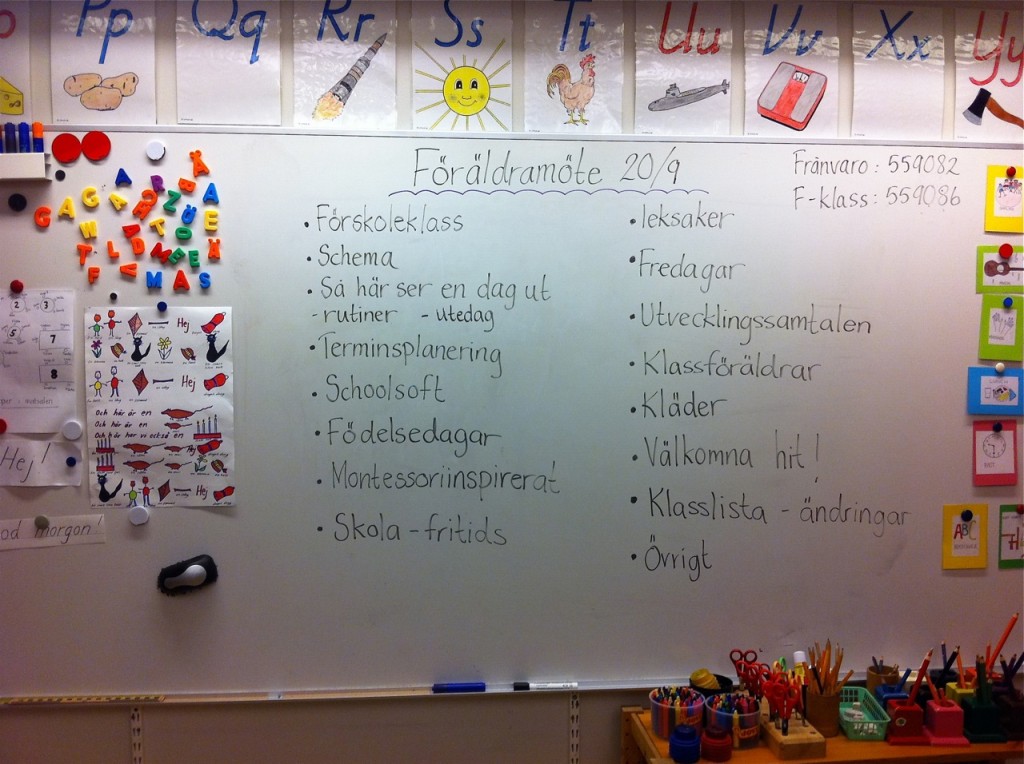 Pp
Qq
Rr
Ss
Tt
Uu
Vv
Xx
Yy
Föräldramöte 20/9
Frånvaro: 559082
F-klass: 559086
• Förskoleklass
• Schema
• Så här ser en dag ut
- rutiner - utedag
• Terminsplanering
• Schoolsoft
• Födelsedagar
• Montessoriinspirerat
• Skola - fritids
• leksaker
• Fredagar
• Utvecklingssamtalen
• Klassföräldrar
• Kläder
• Välkomna hit!
• Klasslista - ändringar
• Övrigt
2
3
5
7
8
Hej!
Hej
Hej
Och här är en
Och här är en
Och här har vi också en
Hej
Hej
morgon!
ABC